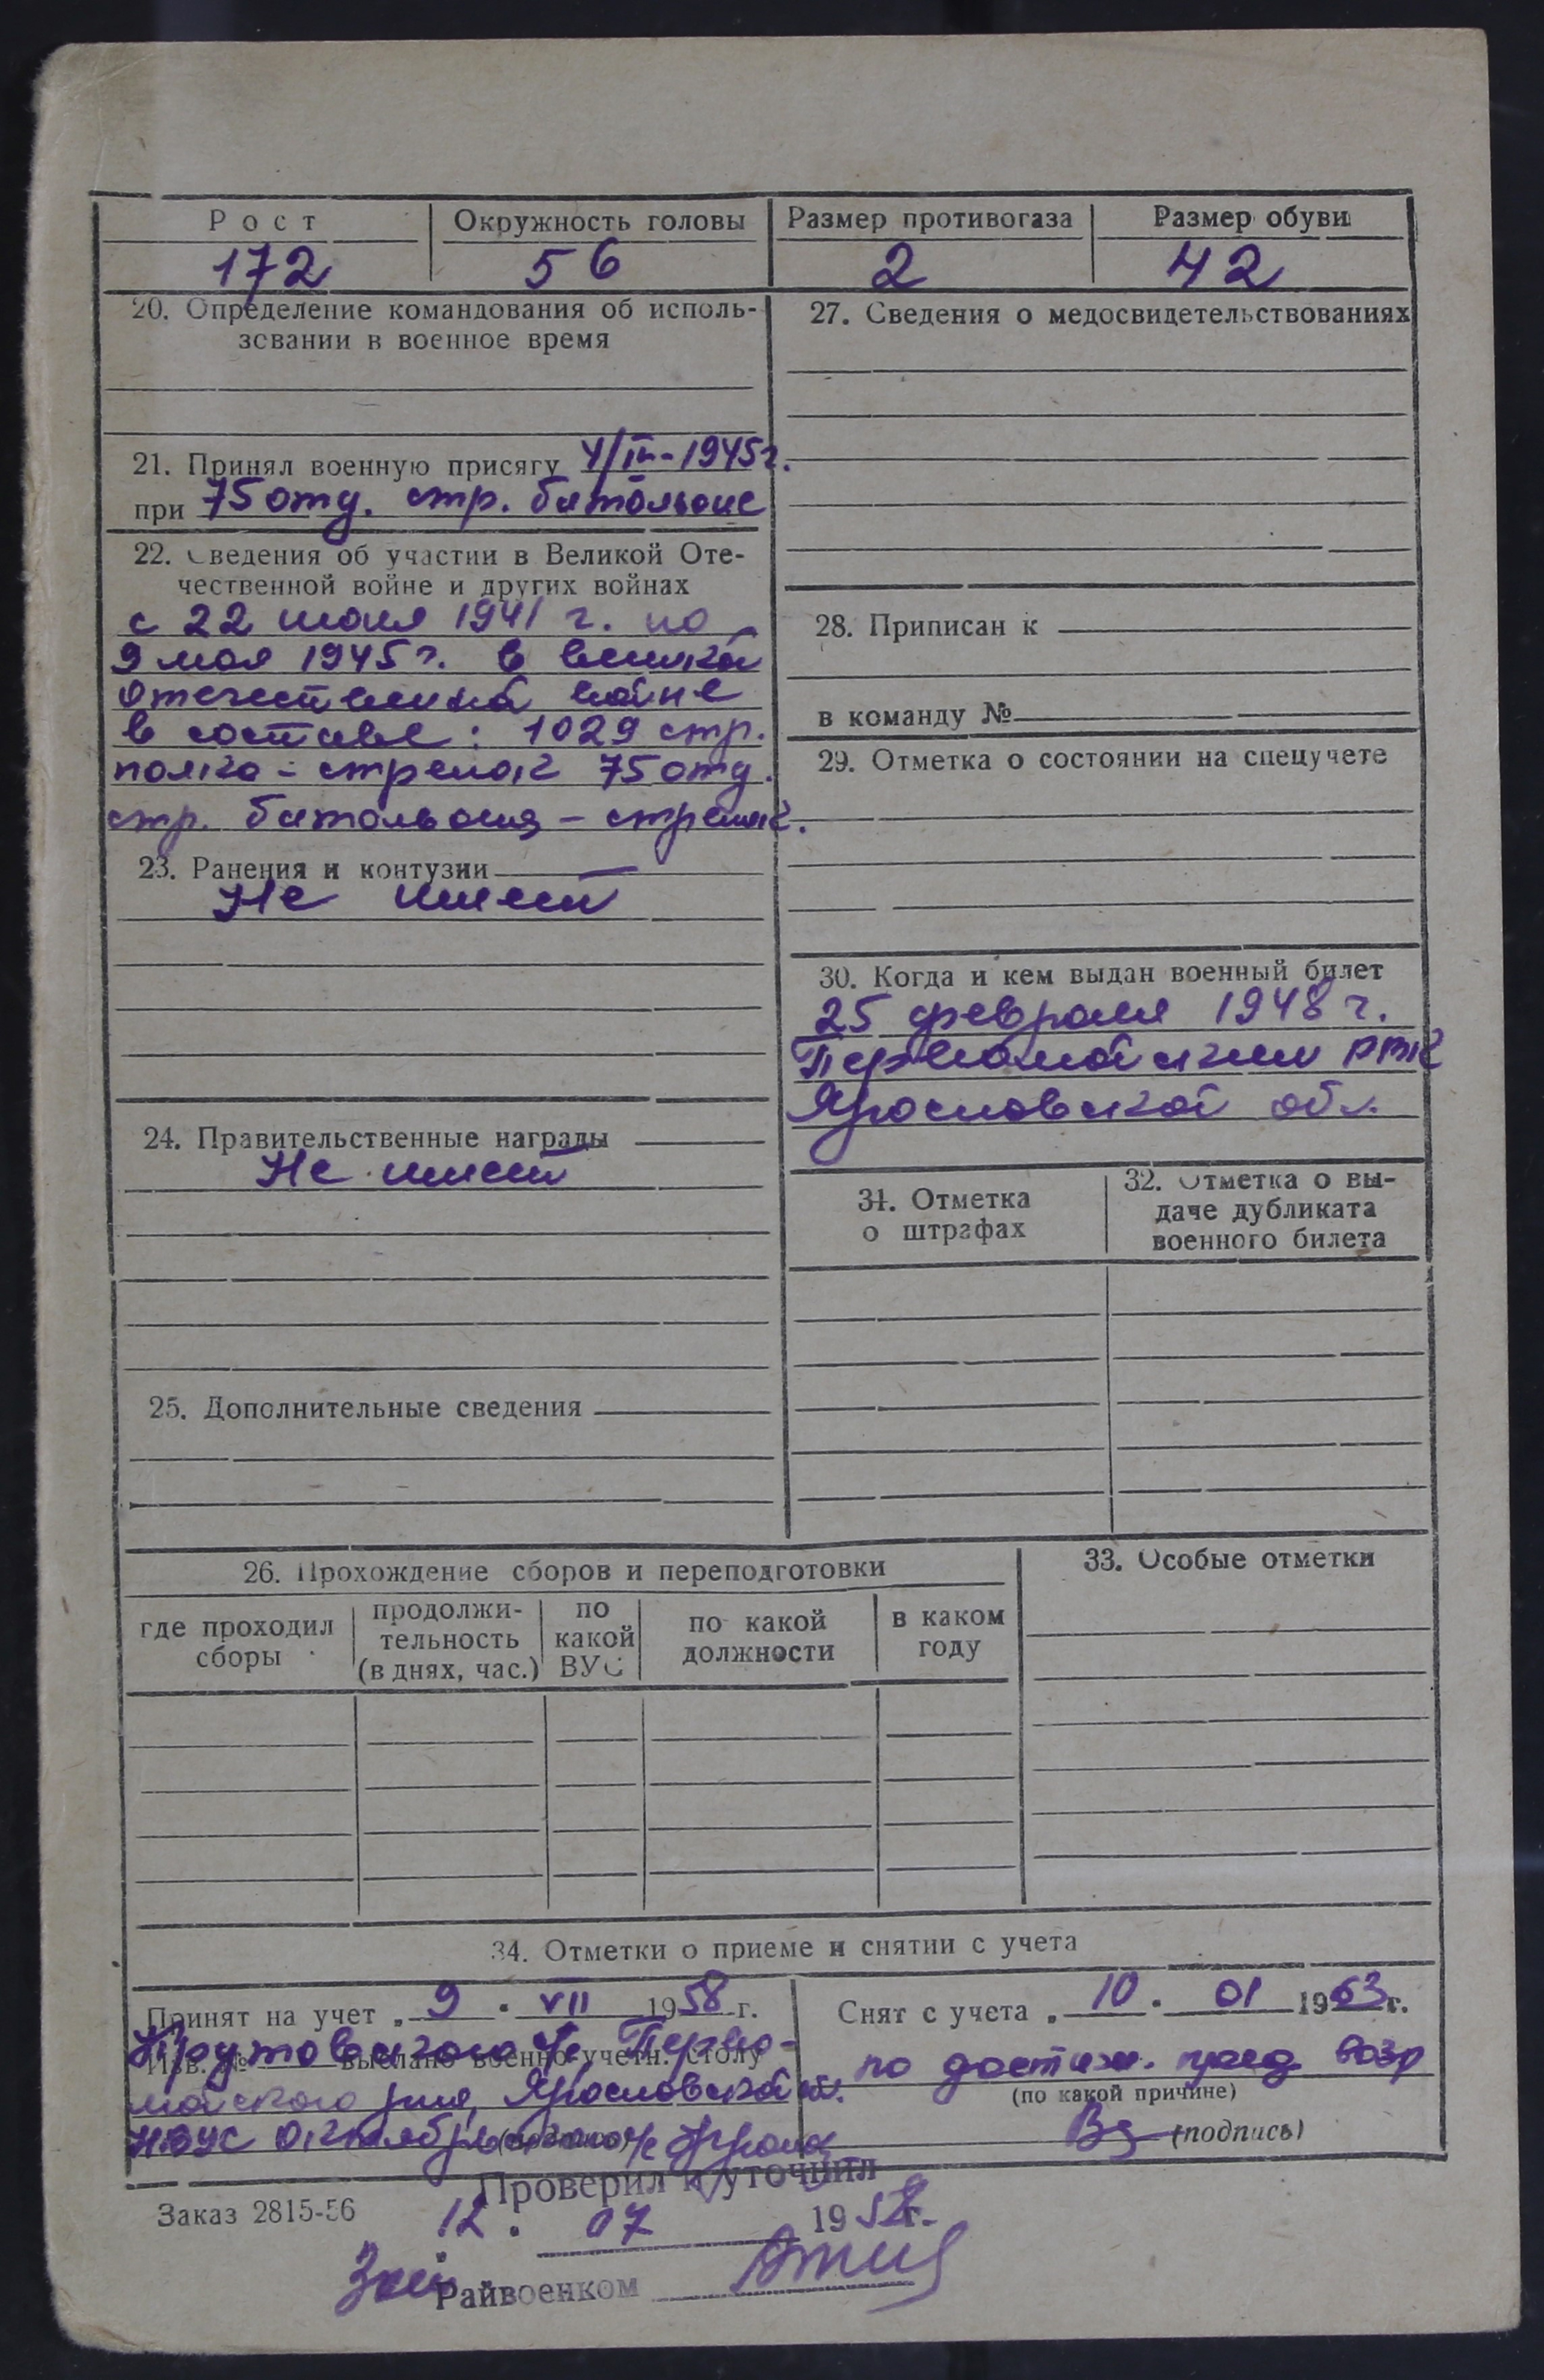 Рост Окружность головы Размер противогаза Размер обуви
172 56 2 42
20. Определение командования об исполь-
зовании в военное время
21. Принял военную присягу 4/III-1945г.
при 75 отд. стр. батальоне
22. Сведения об участии в Великой Оте-
чественной войне и других войнах
с 22 июня 1941 г. по
9 мая 1945 г. в великой
отечественной войне
в составе: 1029 стр.
полка - стрелок 75 отд.
стр. батальона - стрелок.
23. Ранения и контузии
Не имеет
24. Правительственные награды
Не имеет
25. Дополнительные сведения
27. Сведения о медосвидетельствованиях
28. Приписан к
в команду №
29. Отметка о состоянии на спецучете
30. Когда и кем выдан военный билет
25 февраля 1948 г.
Первомайским РВК
Ярославской обл.
31. Отметка
о штрафах
32. Отметка о вы-
даче дубликата
военного билета
26. Прохождение сборов и переподготовки
где проходил
сборы
продолжи-
тельность
(в днях, час.)
по
какой
ВУС
по какой
должности
в каком
году
33. Особые отметки
34. Отметки о приеме и снятии с учета
Принят на учет „ 9 " VII 1958 г.
выслано военно-учетн. столу
Первo-
майского р-на, Ярославской обл.
ИВУС Октябрьского
Снят с учета „ 10 " 01 1963 г.
по достиж. пред. возр
(по какой причине)
(подпись)
Заказ 2815-56
Проверил и уточнил
12. 07 1958 г.
Райвоенком